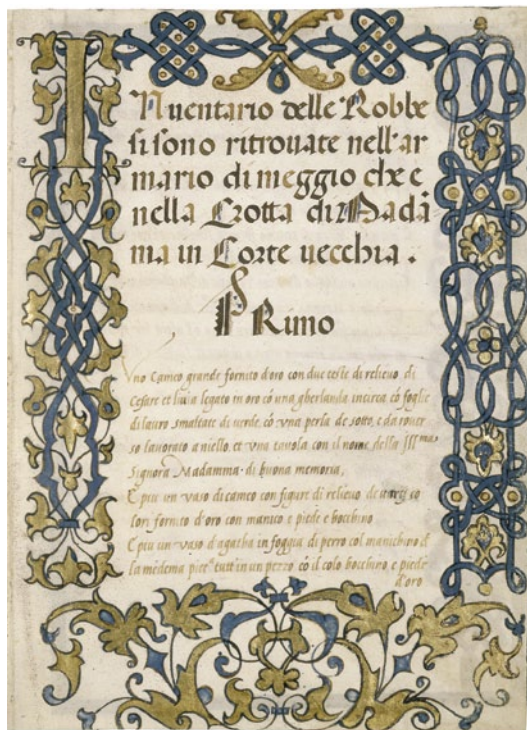 Inuentario delle Robbe
si sono ritrouate nell'ar
mario di meggio che e
nella Grotta di Madã
ma in Corte uecchia.
PRimo
Vno Cameo grande fornito d'oro con due teste di relieuo di
Cesare et liuia legato in oro cõ una gherlanda incirca cõ foglie
di lauro smaltate di uerde, cõ vna perla de sotto, e da rouer
so lauorato a niello, et vna tauola con il nome della Ill^ma
Signora Madamma di buona memoria,
E piu un vaso di cameo con figure di relieuo de co
lori fornito d'oro con manico e piede e bocchino
E piu un vaso d'agatha in foggia di perro col manichino d
la medema tutt'in un pezzo cõ il colo bocchino, e piede
d'oro